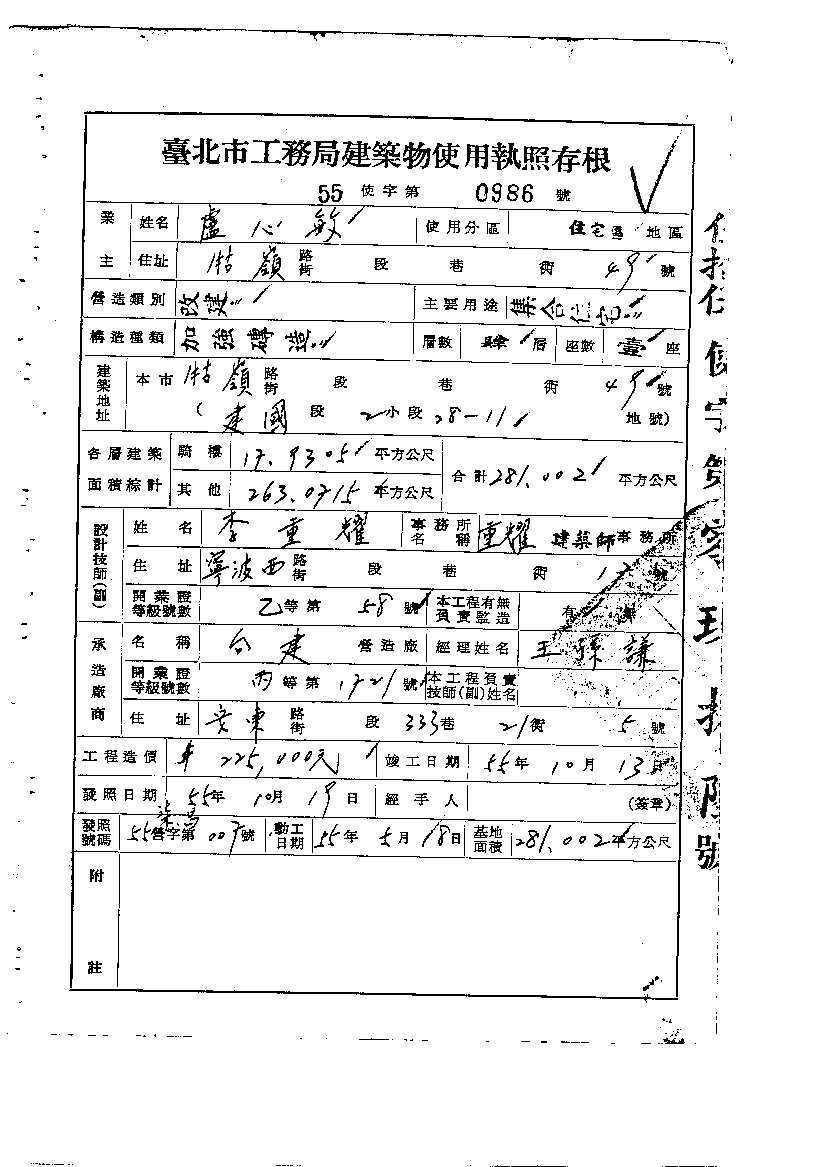 臺北市工務局建築物使用執照存根
55 使字第 0986 號
業主 姓名 盧心敏 使用分區 住宅區 地區
住址 牯嶺 路街 段 巷 衖 49 號
營造類別 改建 主要用途 集合住宅
構造種類 加強磚造 層數 肆層 座數 壹座
建築地址 本市 牯嶺 路街 段 巷 衖 49 號
(建國段 2小段 28-11 地號)
各層建築面積綜計 騎樓 17.9305 平方公尺 合計 281.002 平方公尺
其他 263.0715 平方公尺
設計技師(副) 姓名 李重耀 事務所名稱 重耀 建築師事務所
住址 寧波西 路街 段 巷 衖 號
開業證等級號數 乙等第 58 號 本工程有無負責監造 有
承造廠商 名稱 合建 營造廠 經理姓名 王孫謙
開業證等級號數 丙等第 1721 號 本工程負責技師(副)姓名
住址 安東 路街 段 333巷 21衖 5 號
工程造價 225,000元 竣工日期 55年 10月 13日
發照日期 55年 10月 19日 經手人 (簽章)
發照號碼 55營字第 007 號 動工日期 55年 5月 18日 基地面積 281.002 平方公尺
附註